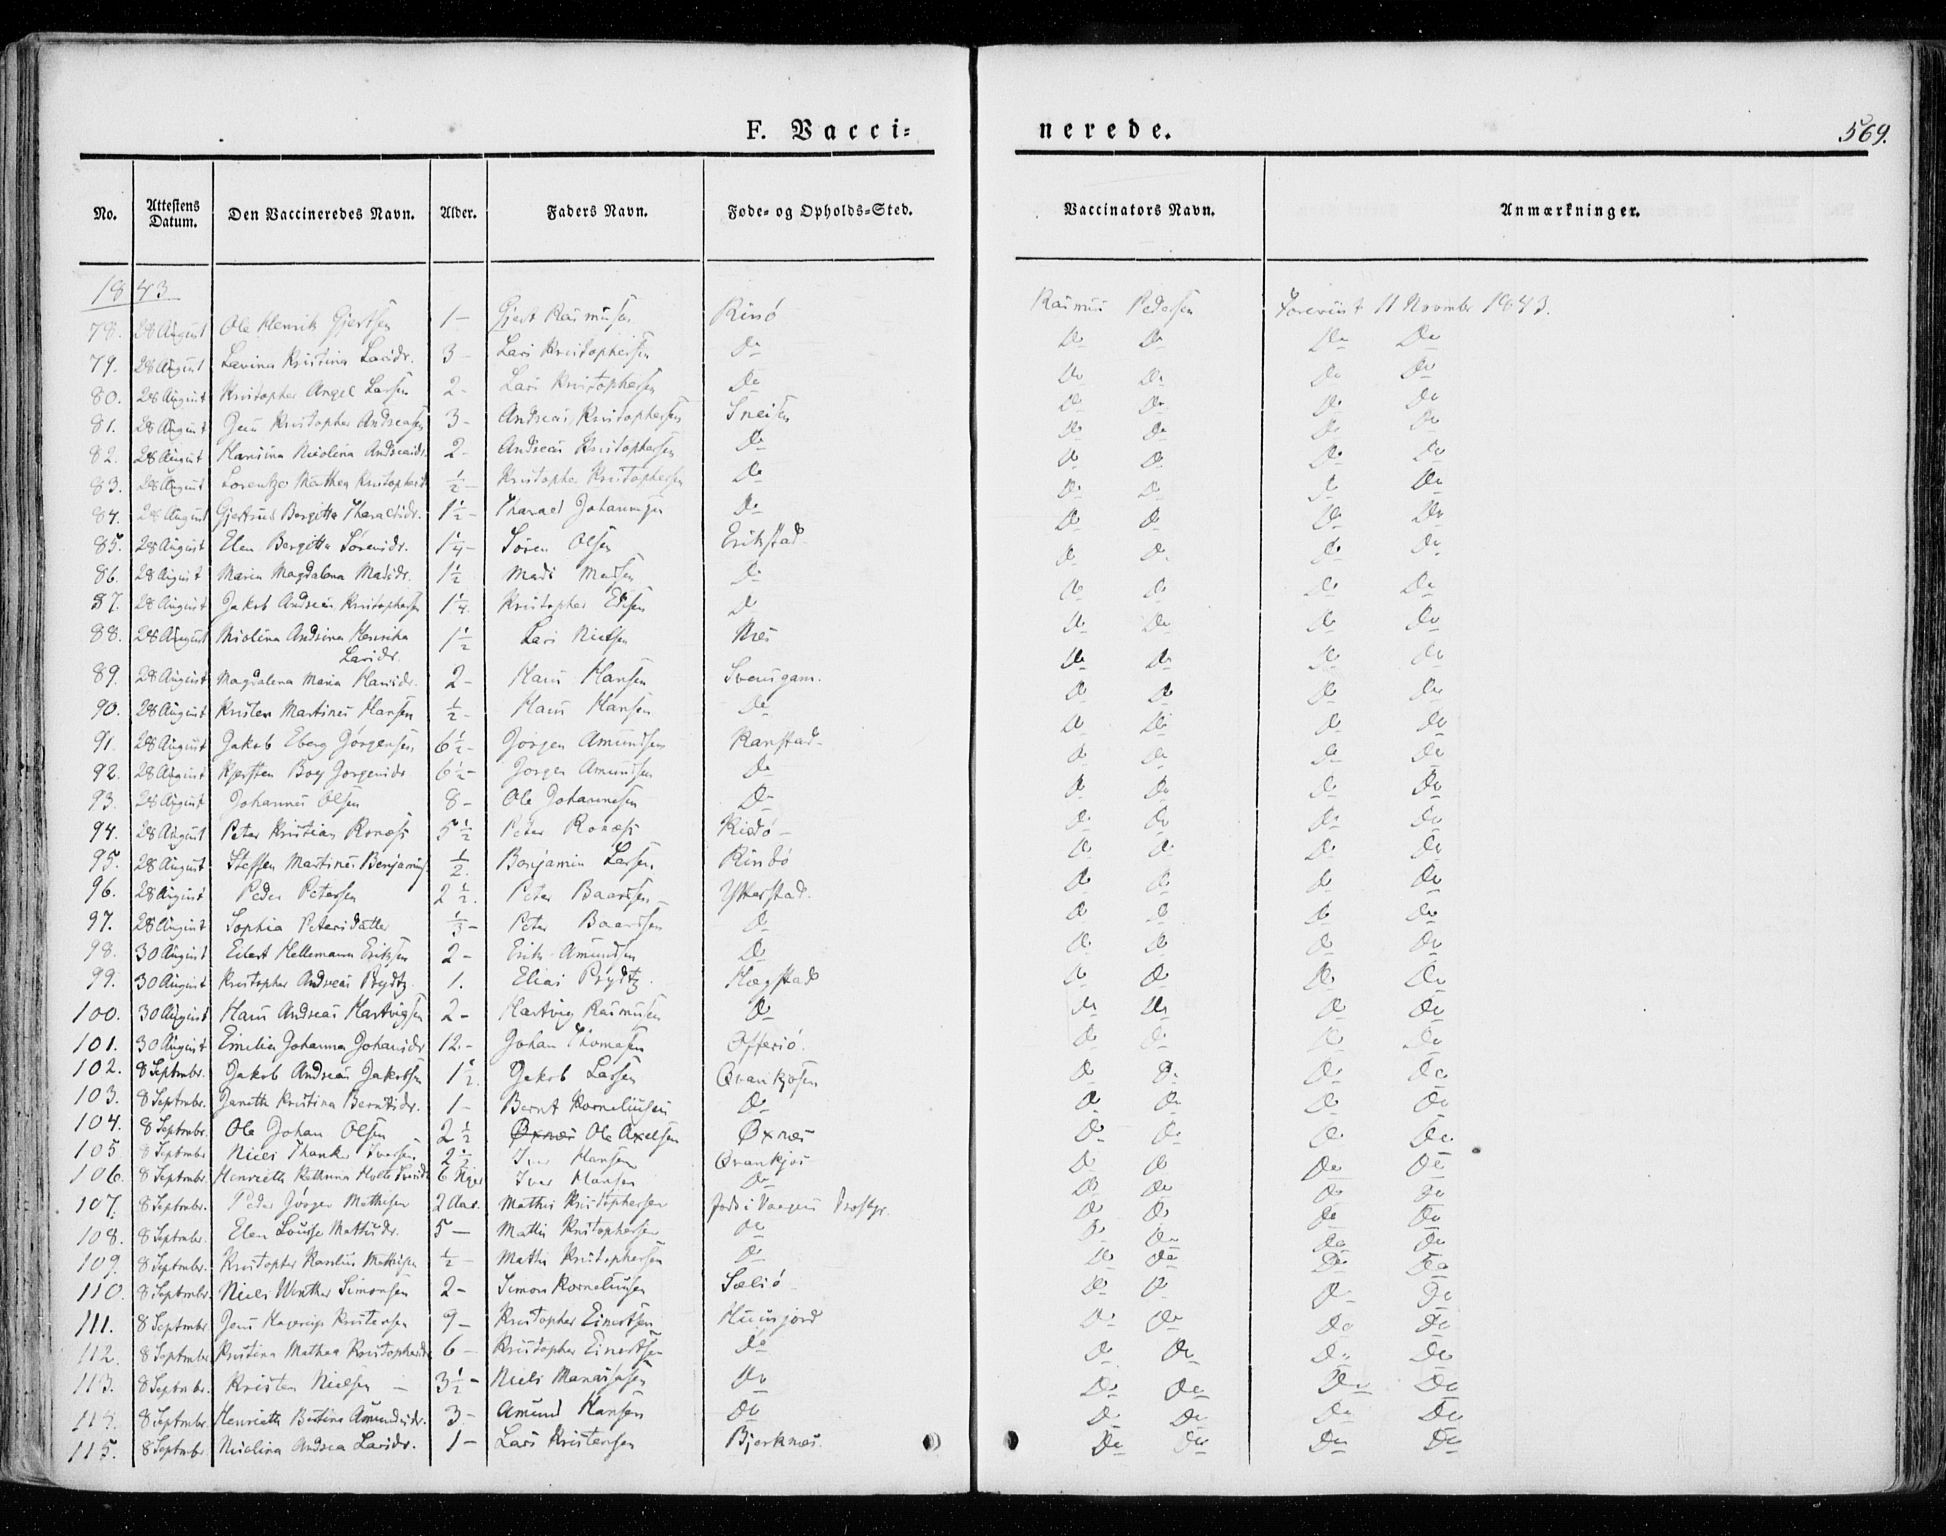 F. Vacci= nerede.
569.
No. Attestens Datum. Den Vaccineredes Navn. Alder. Faders Navn. Føde- og Opholds-Sted. Vaccinators Navn. Anmærkninger.
1843
78. 28 August Ole Henrik Gjertsen 1 - Gjert Rasmusen Rinø Rasmus Pedersen Foreviist 11 November 1843.
79. 28 August Lavina Kristina Larsdr. 3 - Lars Kristophersen Do Do Do Do Do
80. 28 August Kristopher Angel Larsen 2 - Lars Kristophersen Do Do Do Do Do
81. 28 August Jens Kristopher Andreasen 3 - Andreas Kristophersen Sneisen Do Do Do Do
82. 28 August Hansina Nicolina Andreasdr. 2 - Andreas Kristophersen Do Do Do Do Do
83. 28 August Lorentze Mathea Kristophersd 1/2 - Kristopher Kristophersen Do Do Do Do Do
84. 28 August Gjertrud Bergitta Tharaldsdr. 1 1/2 - Tharald Johannesen Do Do Do Do Do
85. 28 August Elen Bergitta Sørensdr. 1 1/4 - Søren Olsen Erikstad Do Do Do Do
86. 28 August Maria Magdalena Madsdr. 1 1/2 Mads Madsen Do Do Do Do Do
87. 28 August Jakob Andreas Kristophersen 1 1/4 Kristopher Edisen Do Do Do Do Do
88. 28 August Nicolina Andrina Henrika 1 1/2 Lars Nielsen Næs Do Do Do Do
Larsdr.
89. 28 August Magdalena Maria Hansdr. 2 - Hans Hansen Svensgam. Do Do Do Do
90. 28 August Kristen Martines Hansen 1/2 - Hans Hansen Do Do Do Do Do
91. 28 August Jakob Eberg Jørgensen 6 1/2 - Jørgen Amundsen Ranstad Do Do Do Do
92. 28 August Kjersten Boey Jørgensdr 6 1/2 - Jørgen Amundsen Do Do Do Do Do
93. 28 August Johannes Olsen 8 - Ole Johannesen Do Do Do Do Do
94. 28 August Peter Kristian Ronæss 5 1/2 Peter Ronæss Risø - Do Do Do Do
95. 28 August Steffen Martines Benjamins 1/2. Benjamin Larsen Rinsø Do Do Do Do
96. 28 August Peder Petersen 2 1/2. Peter Baardsen - Ytterstad. Do Do Do Do
97. 28 August Sophia Petersdatter 1/3 - Peter Baardsen Do Do Do Do Do
98. 30 August Eilert Hellemann Eriksen 2 - Erik Amundsen Do Do Do Do Do
99. 30 August Kristopher Andreas Prydtz 1. Elias Prydtz. Hægstad Do Do Do Do
100. 30 August Hans Andreas Hartvigsen 2 - Hartvig Rasmusen Do Do Do Do Do
101. 30 August Emilia Johanna Johansdr 12. - Johan Thomasen Offersø. Do Do Do Do
102. 8 Septmbr. Jakob Andreas Jakobsen 1 1/2. Jakob Larsen Qvankjosen Do Do Do Do
103. 8 Septmbr. Janetta Kristina Berntsdr. 1 - Bernt Korneliusen Do Do Do Do Do
104. 8 Septmbr. Ole Johan Olsen 2 1/2 Øxnæs Ole Axelsen Øxnæs Do Do Do Do
105 8 Septmbr Niels Thanke Iversen 2 1/2 Iver Hansen Qvankjos Do Do Do Do
106. 8 Septmbr. Henrietta Holte Iversdr 6 Uger Iver Hansen Do Do Do Do Do
107. 8 Septmbr. Peder Jørgen Mathisen 2 Aar. Mathis Kristophersen født i Vaagens Præstgj. Do Do Do Do
108. 8 Septmbr. Elen Louise Mathisdr. 5 - Mathis Kristophersen Do Do Do Do Do
109. 8 Septmbr. Kristopher Mathisen 1/2 - Mathis Kristophersen Do Do Do Do Do
110. 8 Septmbr. Niels Winther Simonsen 2 - Simon Korneliusen Sælsø Do Do Do Do
111. 8 Septmbr Jens Kristensen 9 - Kristopher Einertsen Huusjord Do Do Do Do
112. 8 Septmbr Kristina Mathea Kristophersdr 6 - Kristopher Einertsen Do Do Do Do Do
113. 8 Septmbr. Kristen Nielsen - 3 1/2 - Niels Manasesen Do Do Do Do Do
114. 8 Septmbr. Henrietta Bertina Amundsdr. 3 - Amund Hansen Do Do Do Do Do
115. 8 Septmbr Nicolina Andrea Larsdr. 1 - Lars Kristensen Bjerknæs. Do Do Do Do